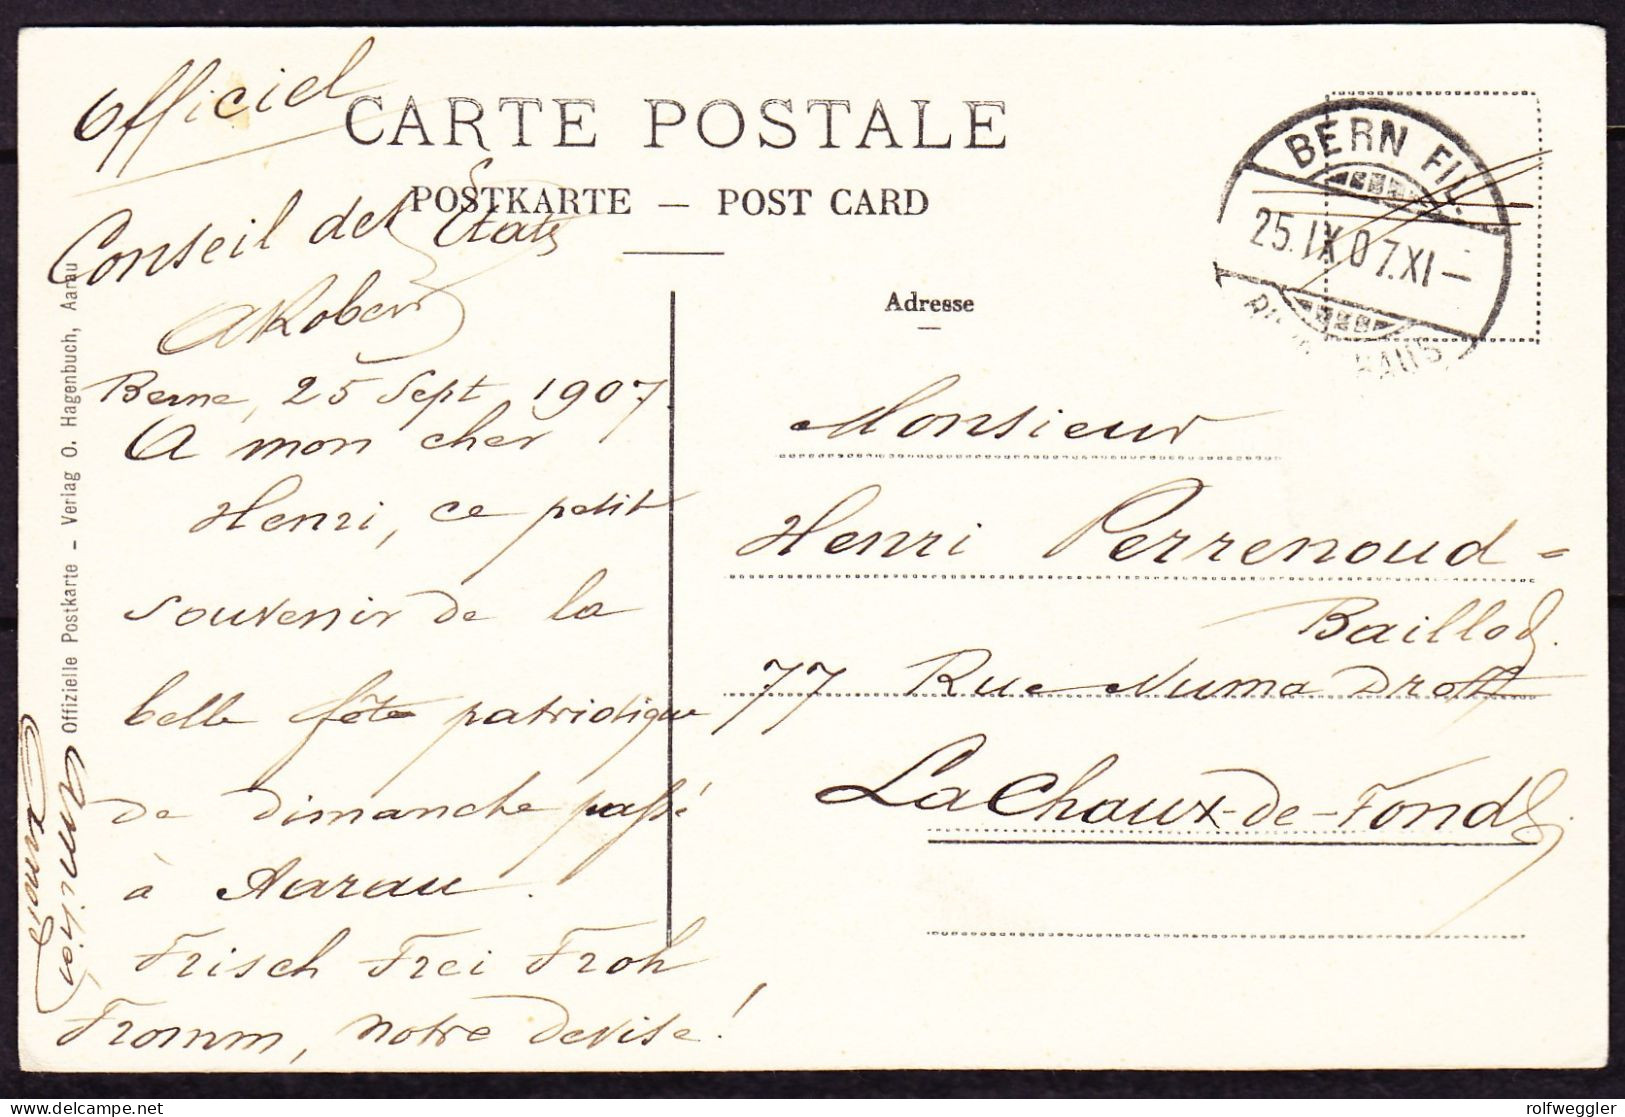 Officiel
CARTE POSTALE
POSTKARTE — POST CARD
Conseil des Etats
ARobert
Berne, 25 Sept 1907
A mon cher
Henri, ce petit
souvenir de la
belle fête patriotique
de dimanche passé
à Aarau.
Frisch Frei Froh
Fromm, notre devise!
Offizielle Postkarte – Verlag O. Hagenbuch, Aarau
BERN FIL.
25.IX.07.XI–
Adresse
Monsieur
Henri Perrenoud=
Baillod.
77 Rue Numa Droz
La Chaux-de-Fonds
rolfweggler